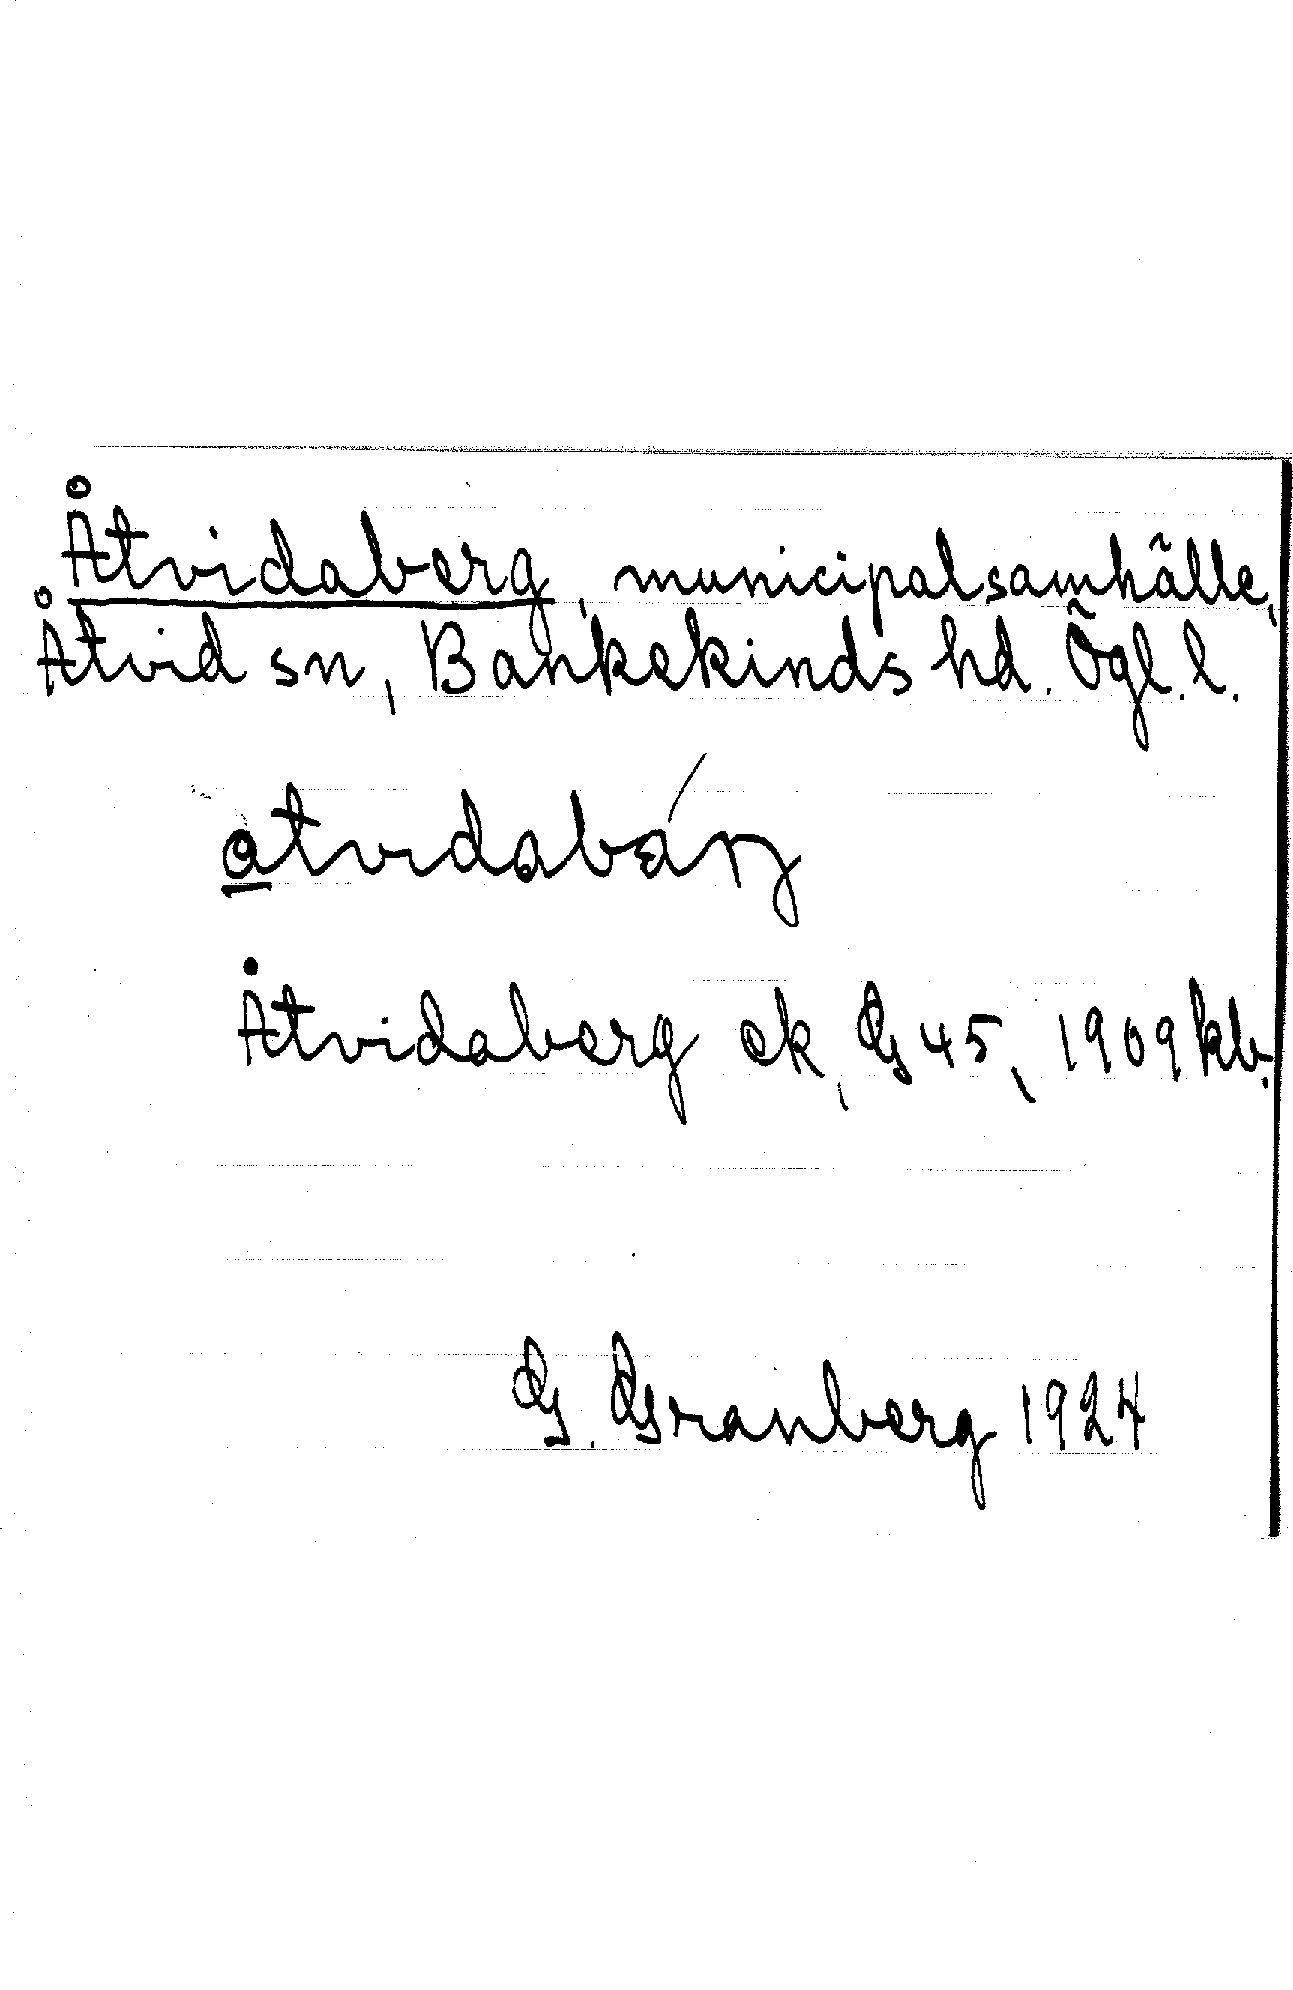 Åtvidaberg, municipalsamhälle,
Åtvid sn, Bankekinds hd. Ögl. l.
åtvidabárg
Åtvidaberg ek, G 45, 1909 kb.
G. Granberg 1924